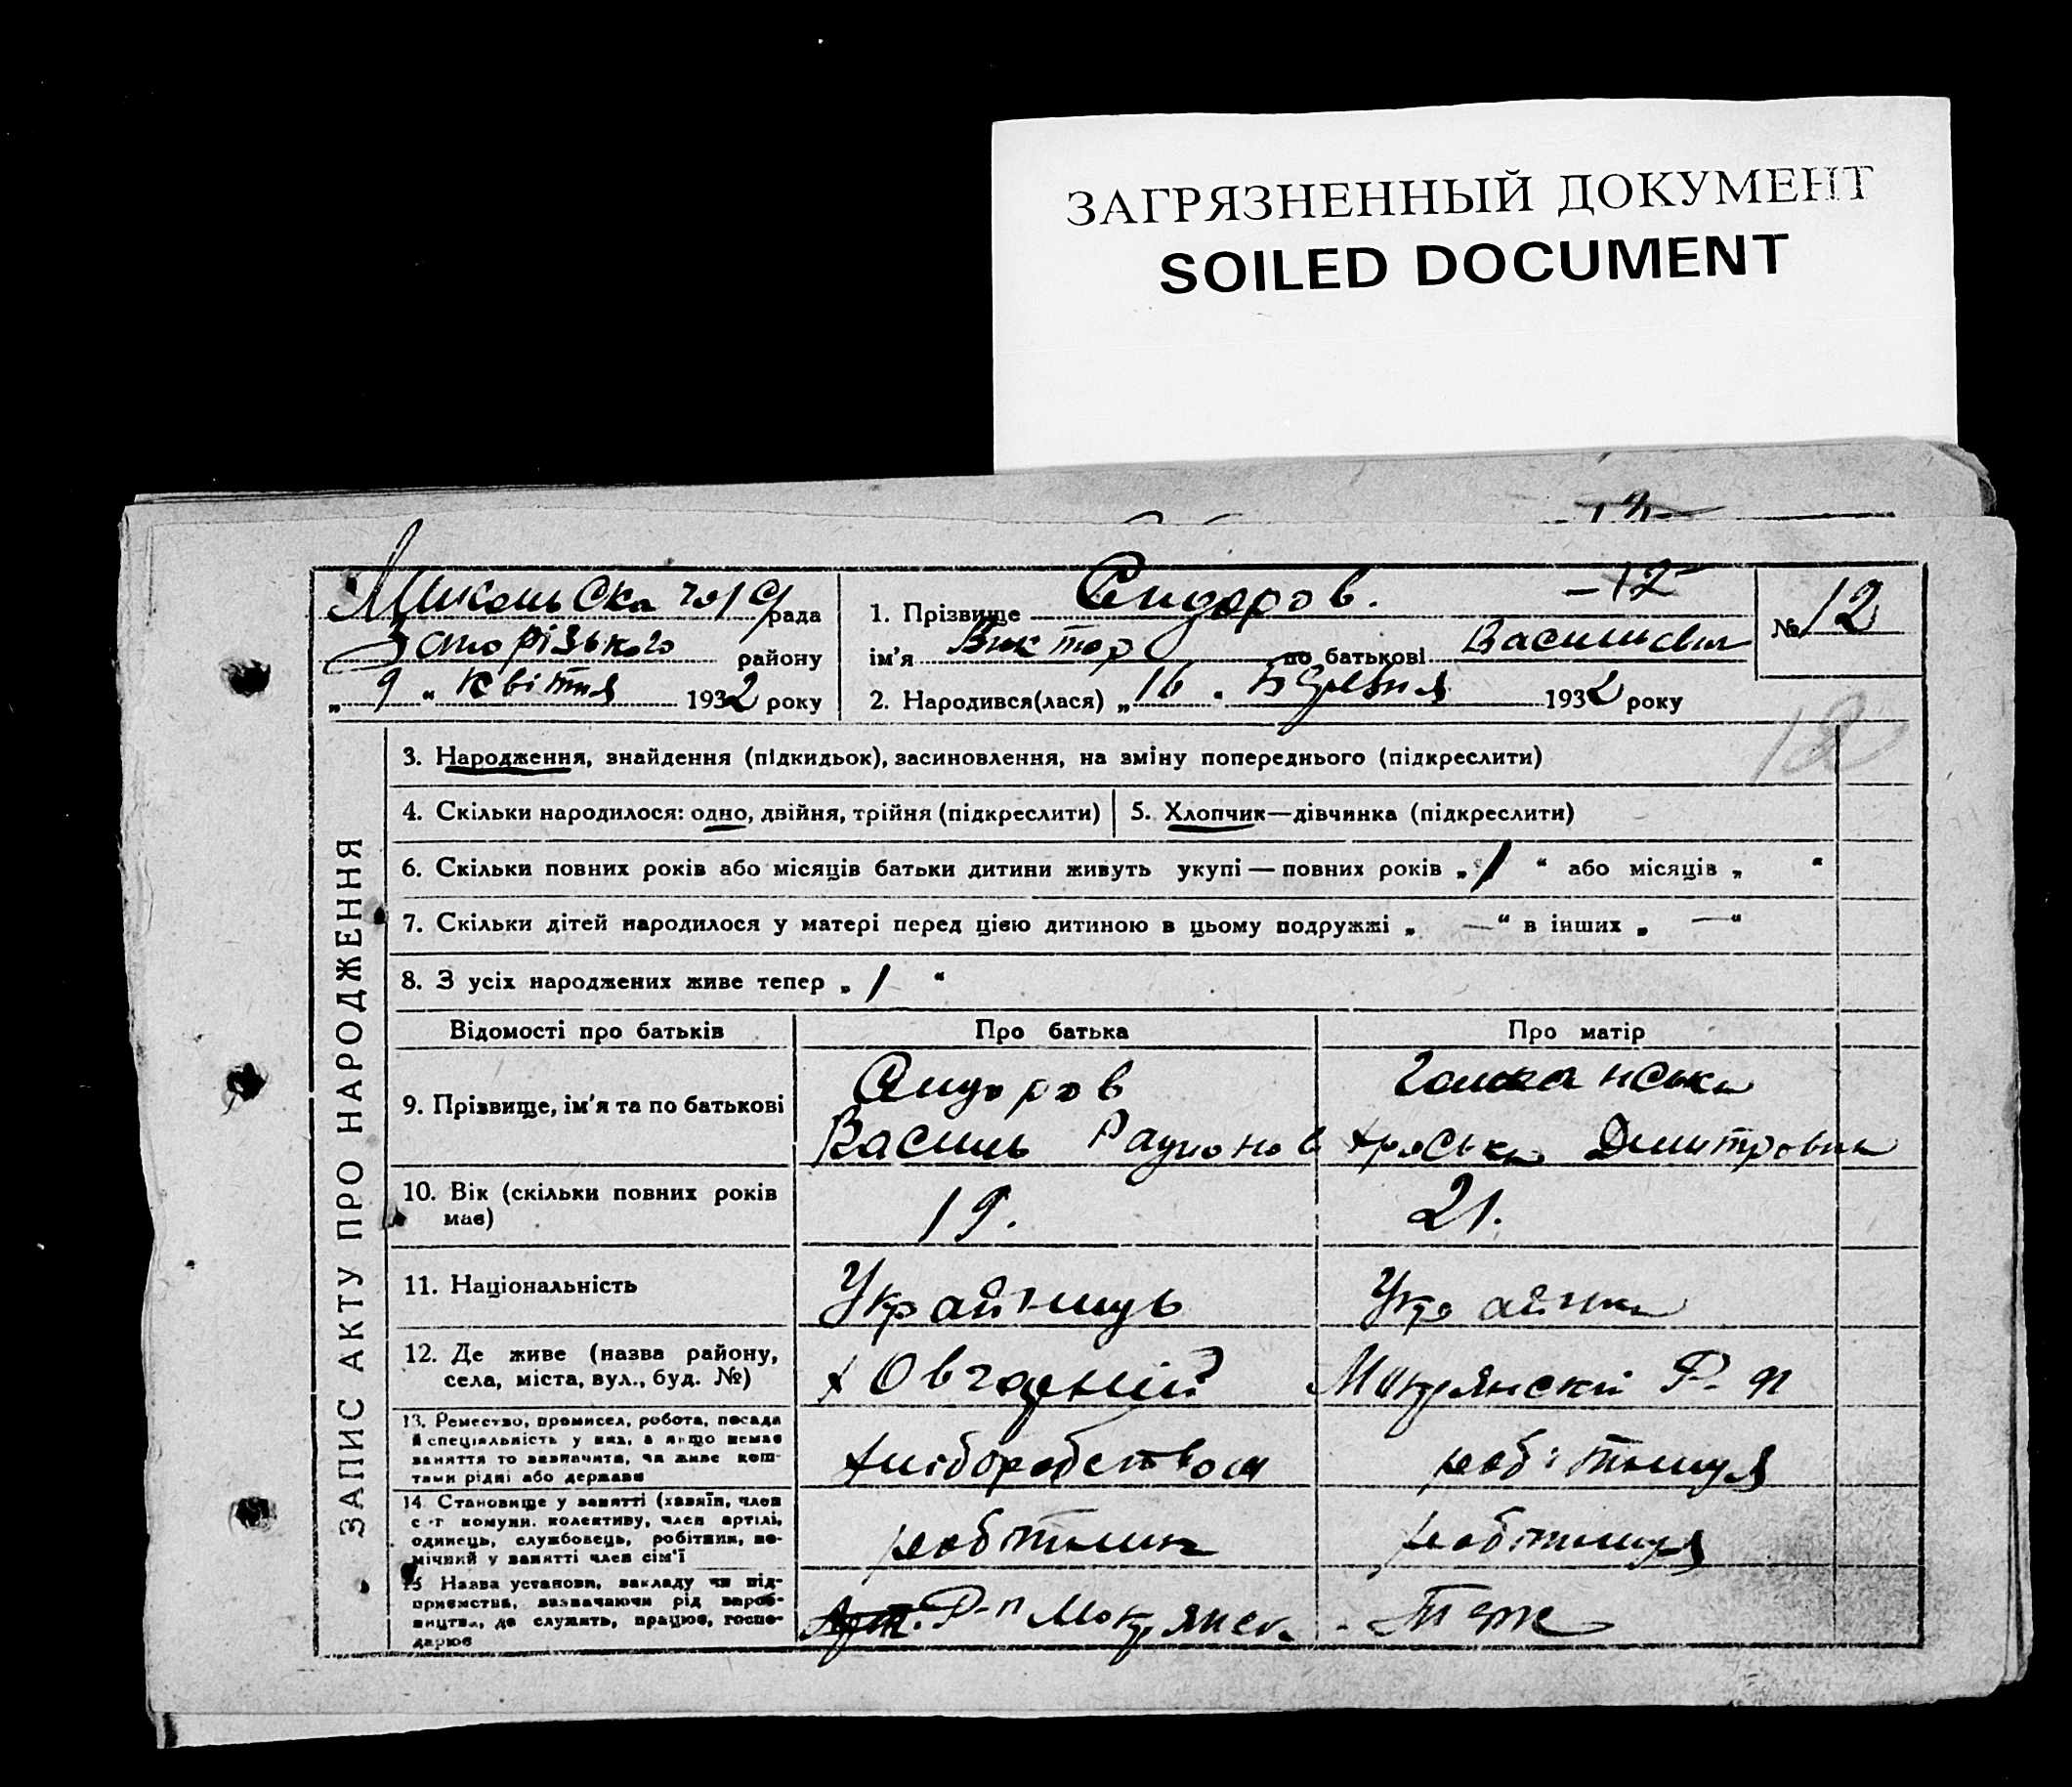 ЗАГРЯЗНЕННЫЙ ДОКУМЕНТ
SOILED DOCUMENT
рада
Запорізького району
„ 9 “ квітня 1932 року
1. Прізвище Сидоров. -12-
ім'я Виктор по батькові Васильевич
2. Народився(лася) „ 16 . 1932 року
№ 12
12
ЗАПИС АКТУ ПРО НАРОДЖЕННЯ
3. Народження, знайдення (підкидьок), засиновлення, на зміну попереднього (підкреслити)
4. Скільки народилося: одно, двійня, трійня (підкреслити)
5. Хлопчик—дівчинка (підкреслити)
6. Скільки повних років або місяців батьки дитини живуть укупі — повних років „ 1 “ або місяців „ “
7. Скільки дітей народилося у матері перед цією дитиною в цьому подружжі „ — “ в інших „ — “
8. З усіх народжених живе тепер „ 1 “
Відомості про батьків
Про батька
Про матір
9. Прізвище, ім'я та по батькові
Сидоров
Василь Радионов
Дмитровна
10. Вік (скільки повних років
має)
19.
21.
11. Національність
Українець
Українка
12. Де живе (назва району,
села, міста, вул., буд. №)
Мокрянскй Р-н
13. Ремество, промисел, робота, посада
й спеціяльність у них, а якщо немає
заняття то зазначити, чи живе кош-
тами рідні або держави
хлiборобством
робітниця
14. Становище у занятті (хазяїн, член
с.-г комуни. колективу, член артілі,
одинець, службовець, робітник, по-
мічний у занятті член сім'ї
робтник
робтниця
15 Назва установи, закладу чи під-
приємства, зазначаючи рід вироб-
ництва, де служить, працює, госпо-
дарює
Р-н Мокрянск.
Теж